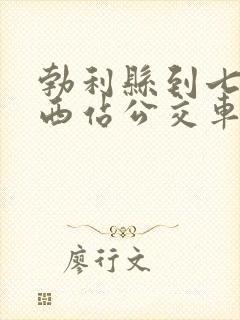 勃利縣到七
西佔公交車
廖行文